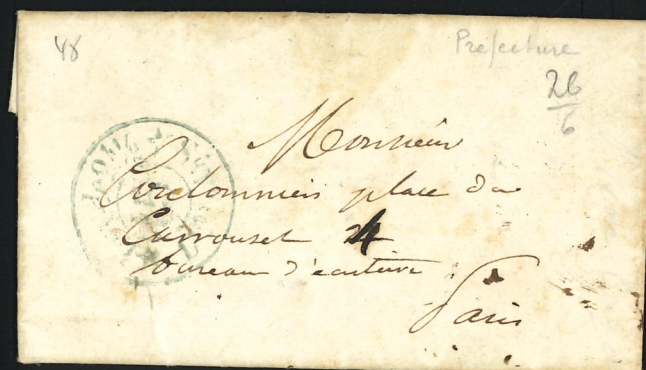 48
Préfecture
26
6
Monsieur
Cordonnier place du
Carrousel 24
bureau d'écriture
Paris